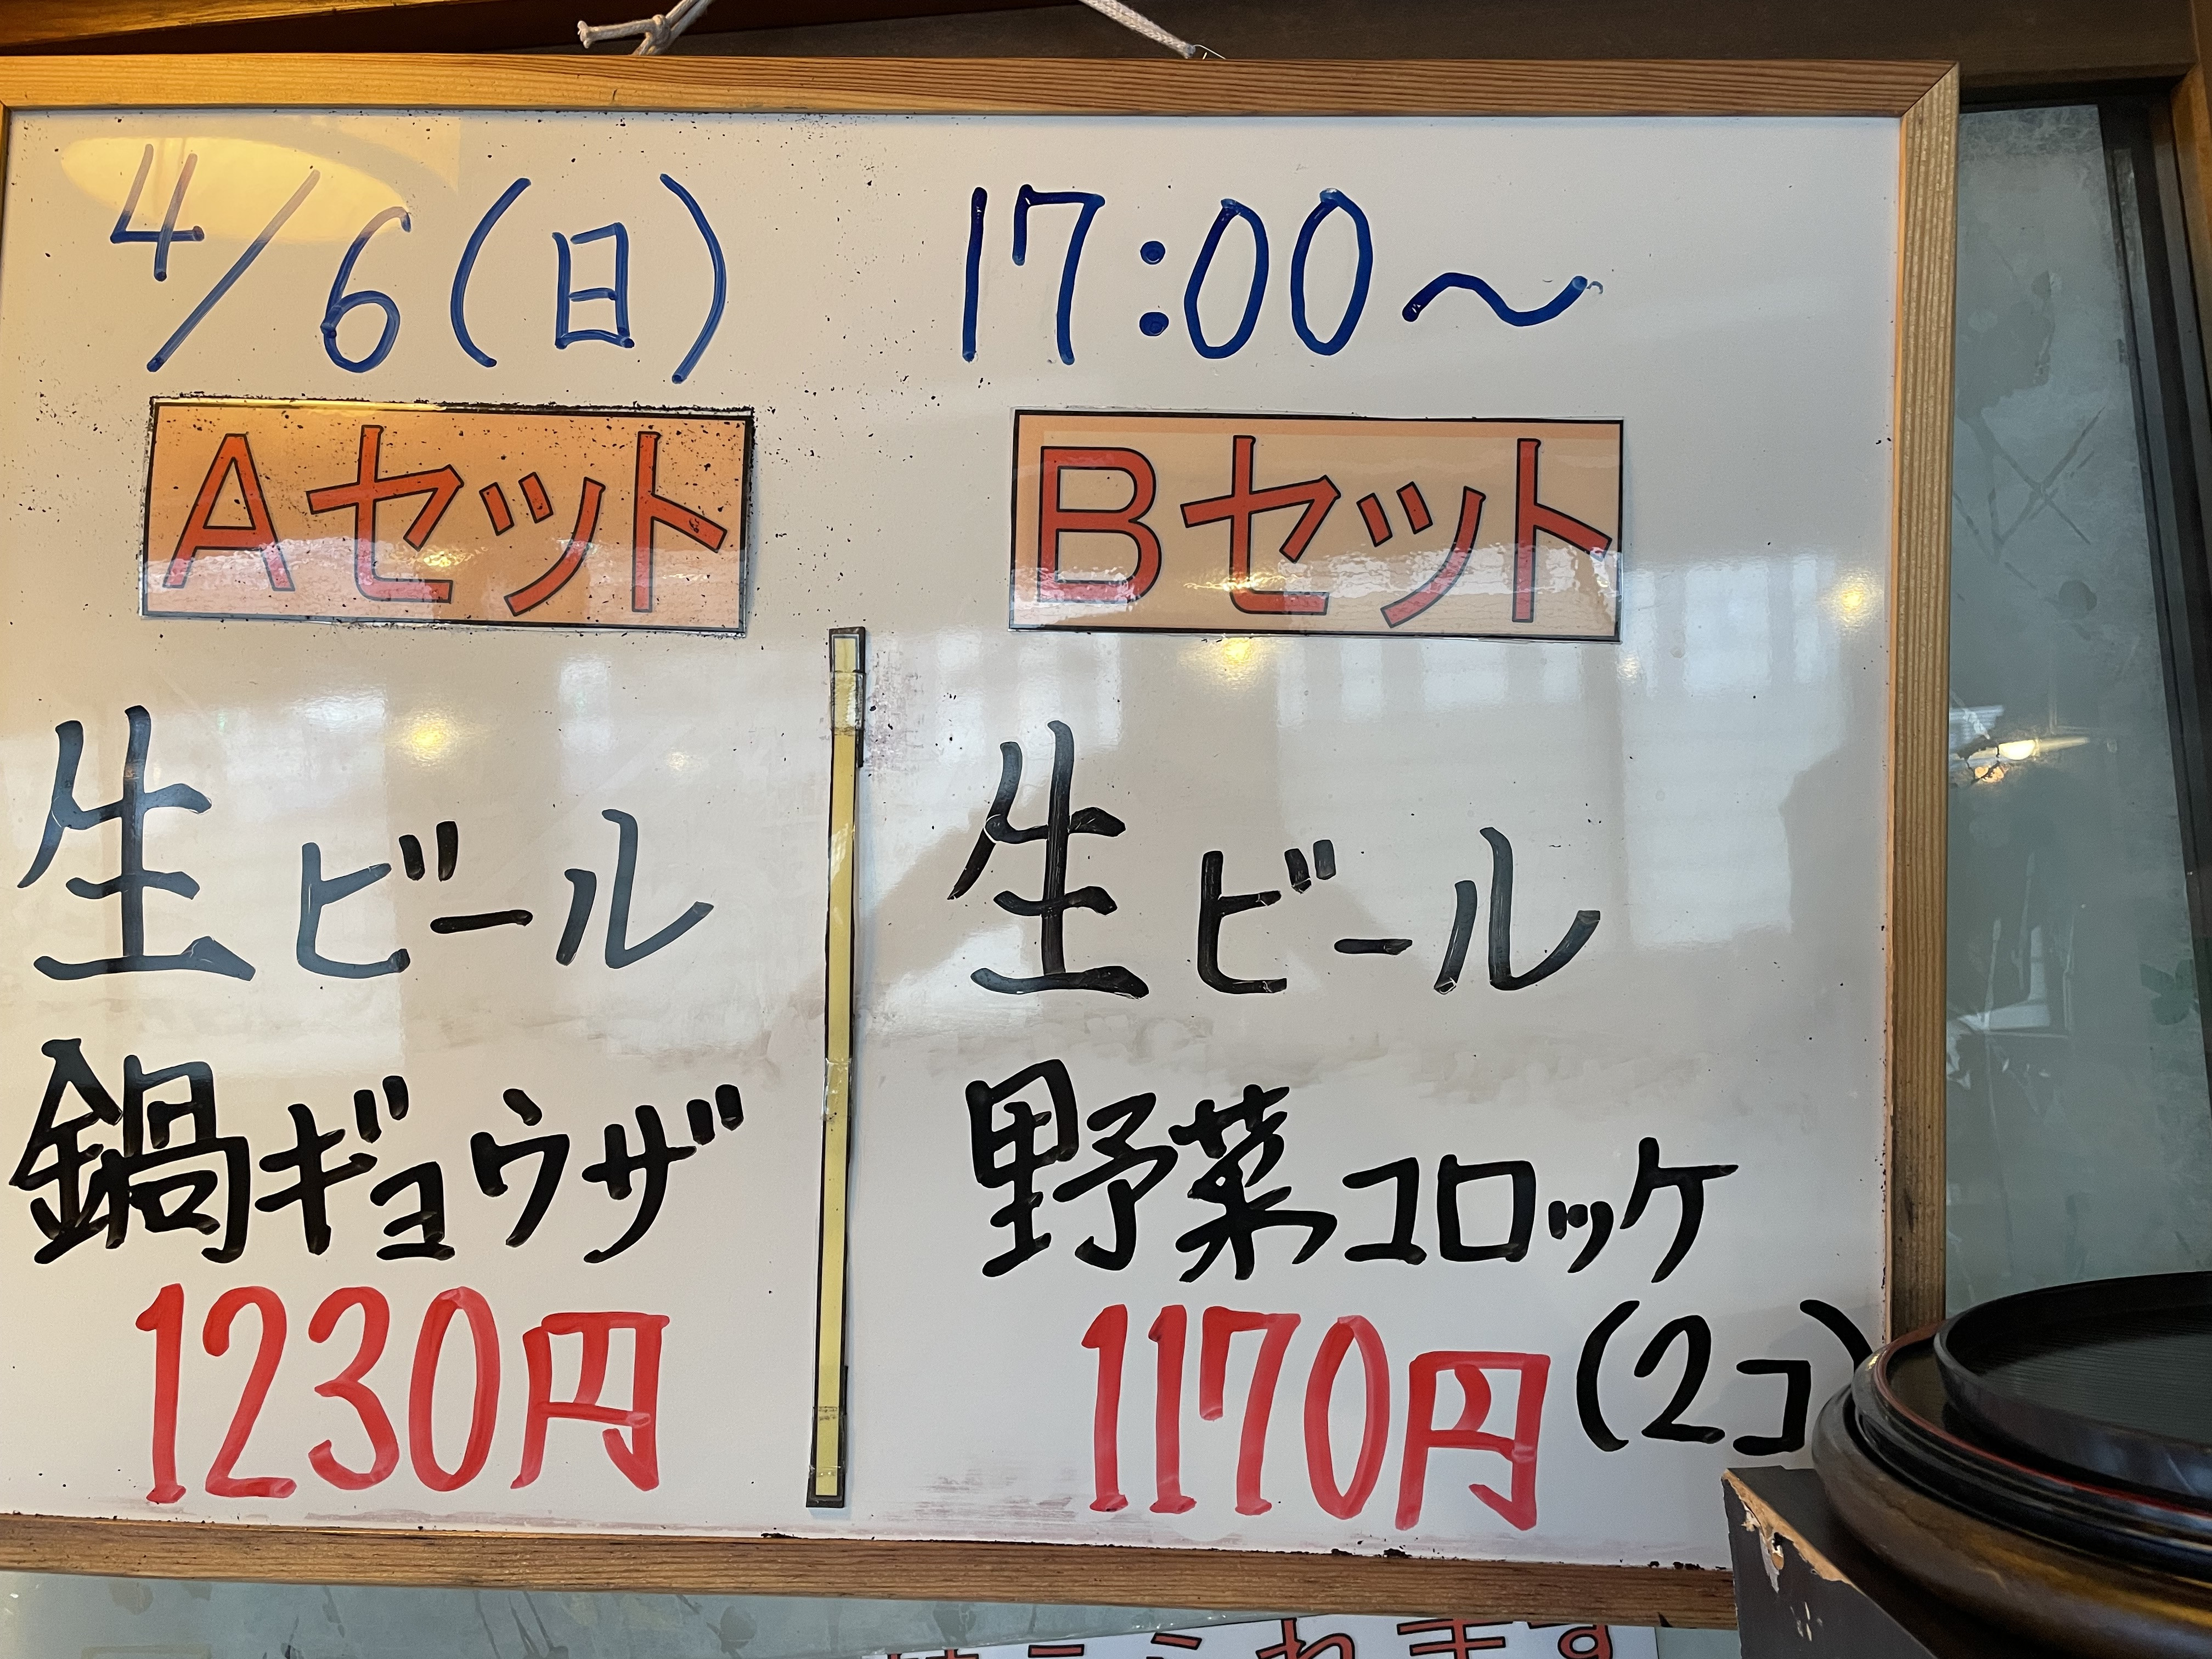 4/6(日) 17:00～
Aセット
生ビール
鍋ギョウザ
1230円
Bセット
生ビール
野菜コロッケ
1170円(2コ)